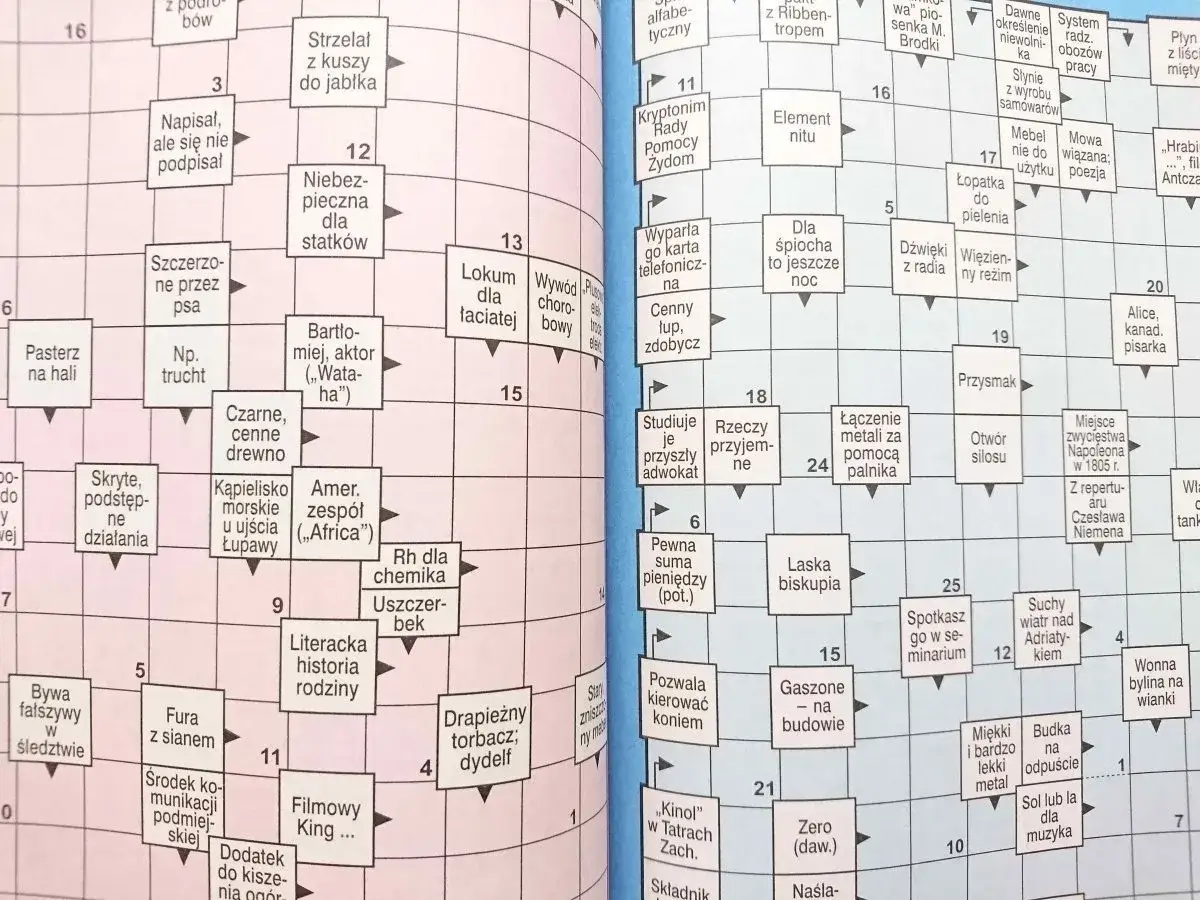 z podro-
bów
16
Strzelał
z kuszy
do jabłka
3
Napisał,
ale się nie
podpisał
12
Niebez-
pieczna
dla
statków
13
Szczerzo-
ne przez
psa
Lokum
dla
łaciatej
Wywód
choro-
bowy
6
Pasterz
na hali
Np.
trucht
Bartło-
miej, aktor
(„Wata-
ha”)
15
Czarne,
cenne
drewno
Skryte,
podstęp-
ne
działania
Kąpielisko
morskie
u ujścia
Łupawy
Amer.
zespół
(„Africa”)
Rh dla
chemika
Uszczer-
bek
7
9
14
Literacka
historia
rodziny
5
Bywa
fałszywy
w
śledztwie
Fura
z sianem
Drapieżny
torbacz;
dydelf
11
4
Środek ko-
munikacji
podmiej-
skiej
Filmowy
King ...
1
0
Dodatek
do kisze-
nia ogór-
alfabe-
tyczny
z Ribben-
tropem
wa” pio-
senka M.
Brodki
Dawne
określenie
niewolni-
ka
System
radz.
obozów
pracy
Płyn
z liści
mięty
Słynie
z wyrobu
samowarów
11
16
Kryptonim
Rady
Pomocy
Żydom
Element
nitu
Mebel
nie do
użytku
Mowa
wiązana;
poezja
„Hrabi
...”, fil
Antcza
17
Łopatka
do
pielenia
5
Wyparła
go karta
telefonicz-
na
Dla
śpiocha
to jeszcze
noc
Dźwięki
z radia
Więzien-
ny reżim
20
Cenny
łup,
zdobycz
Alice,
kanad.
pisarka
19
Przysmak
18
Studiuje
je
przyszły
adwokat
Rzeczy
przyjem-
ne
24
Łączenie
metali za
pomocą
palnika
Otwór
silosu
Miejsce
zwycięstwa
Napoleona
w 1805 r.
Z repertu-
aru
Czesława
Niemena
6
Pewna
suma
pieniędzy
(pot.)
Laska
biskupia
25
Spotkasz
go w se-
minarium
Suchy
wiatr nad
Adriaty-
kiem
4
12
15
Pozwala
kierować
koniem
Gaszone
– na
budowie
Wonna
bylina na
wianki
Miękki
i bardzo
lekki
metal
Budka
na
odpuście
1
21
„Kinol”
w Tatrach
Zach.
Zero
(daw.)
Sol lub la
dla
muzyka
7
10
Składnik
Naśla-